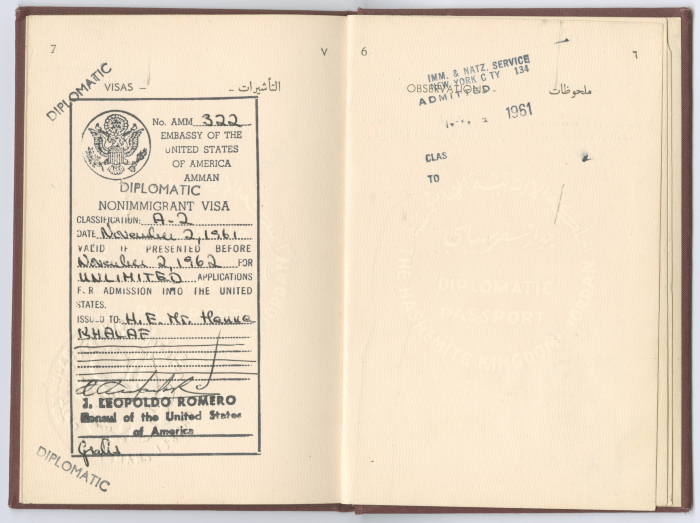 7
٧
DIPLOMATIC
VISAS -
التأشيرات - -
No. AMM. 322
EMBASSY OF THE
UNITED STATES
OF AMERICA
AMMAN
DIPLOMATIC
NONIMMIGRANT VISA
CLASSIFICATION: A-2
DATE November 2, 1961
VALID IF PRESENTED BEFORE
November 2, 1962 FOR
UNLIMITED APPLICATIONS
FOR ADMISSION INTO THE UNITED
STATES.
ISSUED TO: H.E. Mr. Hanna
KHALAF
J. LEOPOLDO ROMERO
Consul of the United States
of America
Gratis
DIPLOMATIC
6
٦
OBSERVATIONS
ملحوظات
IMM. & NATZ. SERVICE
NEW YORK C TY 134
ADMITTED.
1961
CLAS
TO
DIPLOMATIC
PASSPORT